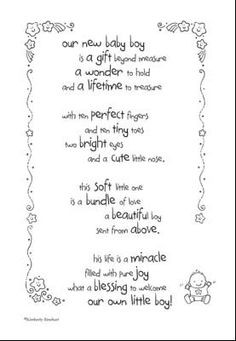 our new baby boy
is a gift beyond measure
a wonder to hold
and a lifetime to treasure
with ten perfect fingers
and ten tiny toes
two bright eyes
and a cute little nose.
this soft little one
is a bundle of love
a beautiful boy
sent from above.
his life is a miracle
filled with pure joy
what a blessing to welcome
our own little boy!
©Kimberly Rinehart